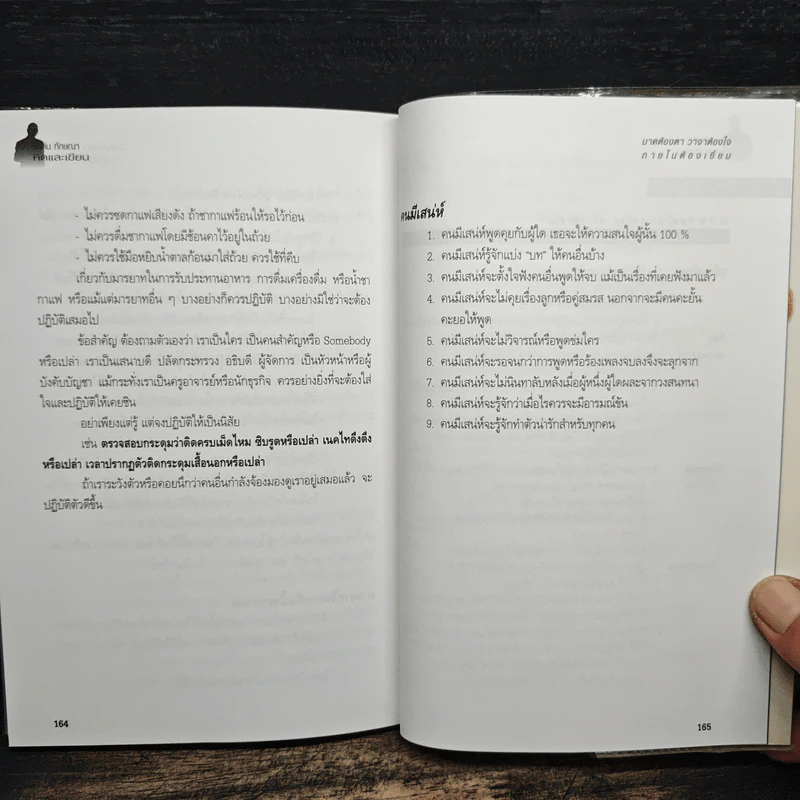 ทักษณา
คิดและเขียน
- ไม่ควรซดกาแฟเสียงดัง ถ้าชากาแฟร้อนให้รอไว้ก่อน
- ไม่ควรดื่มชากาแฟโดยมีช้อนคาไว้อยู่ในถ้วย
- ไม่ควรใช้มือหยิบน้ำตาลก้อนมาใส่ถ้วย ควรใช้ที่คีบ
เกี่ยวกับมารยาทในการรับประทานอาหาร การดื่มเครื่องดื่ม หรือน้ำชา
กาแฟ หรือแม้แต่มารยาทอื่น ๆ บางอย่างก็ควรปฏิบัติ บางอย่างมิใช่ว่าจะต้อง
ปฏิบัติเสมอไป
ข้อสำคัญ ต้องถามตัวเองว่า เราเป็นใคร เป็นคนสำคัญหรือ Somebody
หรือเปล่า เราเป็นเสนาบดี ปลัดกระทรวง อธิบดี ผู้จัดการ เป็นหัวหน้าหรือผู้
บังคับบัญชา แม้กระทั่งเราเป็นครูอาจารย์หรือนักธุรกิจ ควรอย่างยิ่งที่จะต้องใส่
ใจและปฏิบัติให้เคยชิน
อย่าเพียงแต่รู้ แต่จงปฏิบัติให้เป็นนิสัย
เช่น ตรวจสอบกระดุมว่าติดครบเม็ดไหม ซิบรูดหรือเปล่า เนคไทดึงตึง
หรือเปล่า เวลาปรากฏตัวติดกระดุมเสื้อนอกหรือเปล่า
ถ้าเราระวังตัวหรือคอยนึกว่าคนอื่นกำลังจ้องมองดูเราอยู่เสมอแล้ว จะ
ปฏิบัติตัวดีขึ้น
164
มาดต้องตา วาจาต้องใจ
ภายในต้องเยี่ยม
คนมีเสน่ห์
1. คนมีเสน่ห์พูดคุยกับผู้ใด เธอจะให้ความสนใจผู้นั้น 100 %
2. คนมีเสน่ห์รู้จักแบ่ง "บท" ให้คนอื่นบ้าง
3. คนมีเสน่ห์จะตั้งใจฟังคนอื่นพูดให้จบ แม้เป็นเรื่องที่เคยฟังมาแล้ว
4. คนมีเสน่ห์จะไม่คุยเรื่องลูกหรือคู่สมรส นอกจากจะมีคนคะยั้น
คะยอให้พูด
5. คนมีเสน่ห์จะไม่วิจารณ์หรือพูดข่มใคร
6. คนมีเสน่ห์จะรอจนกว่าการพูดหรือร้องเพลงจบลงจึงจะลุกจาก
7. คนมีเสน่ห์จะไม่นินทาลับหลังเมื่อผู้หนึ่งผู้ใดผละจากวงสนทนา
8. คนมีเสน่ห์จะรู้จักว่าเมื่อไรควรจะมีอารมณ์ขัน
9. คนมีเสน่ห์จะรู้จักทำตัวน่ารักสำหรับทุกคน
165